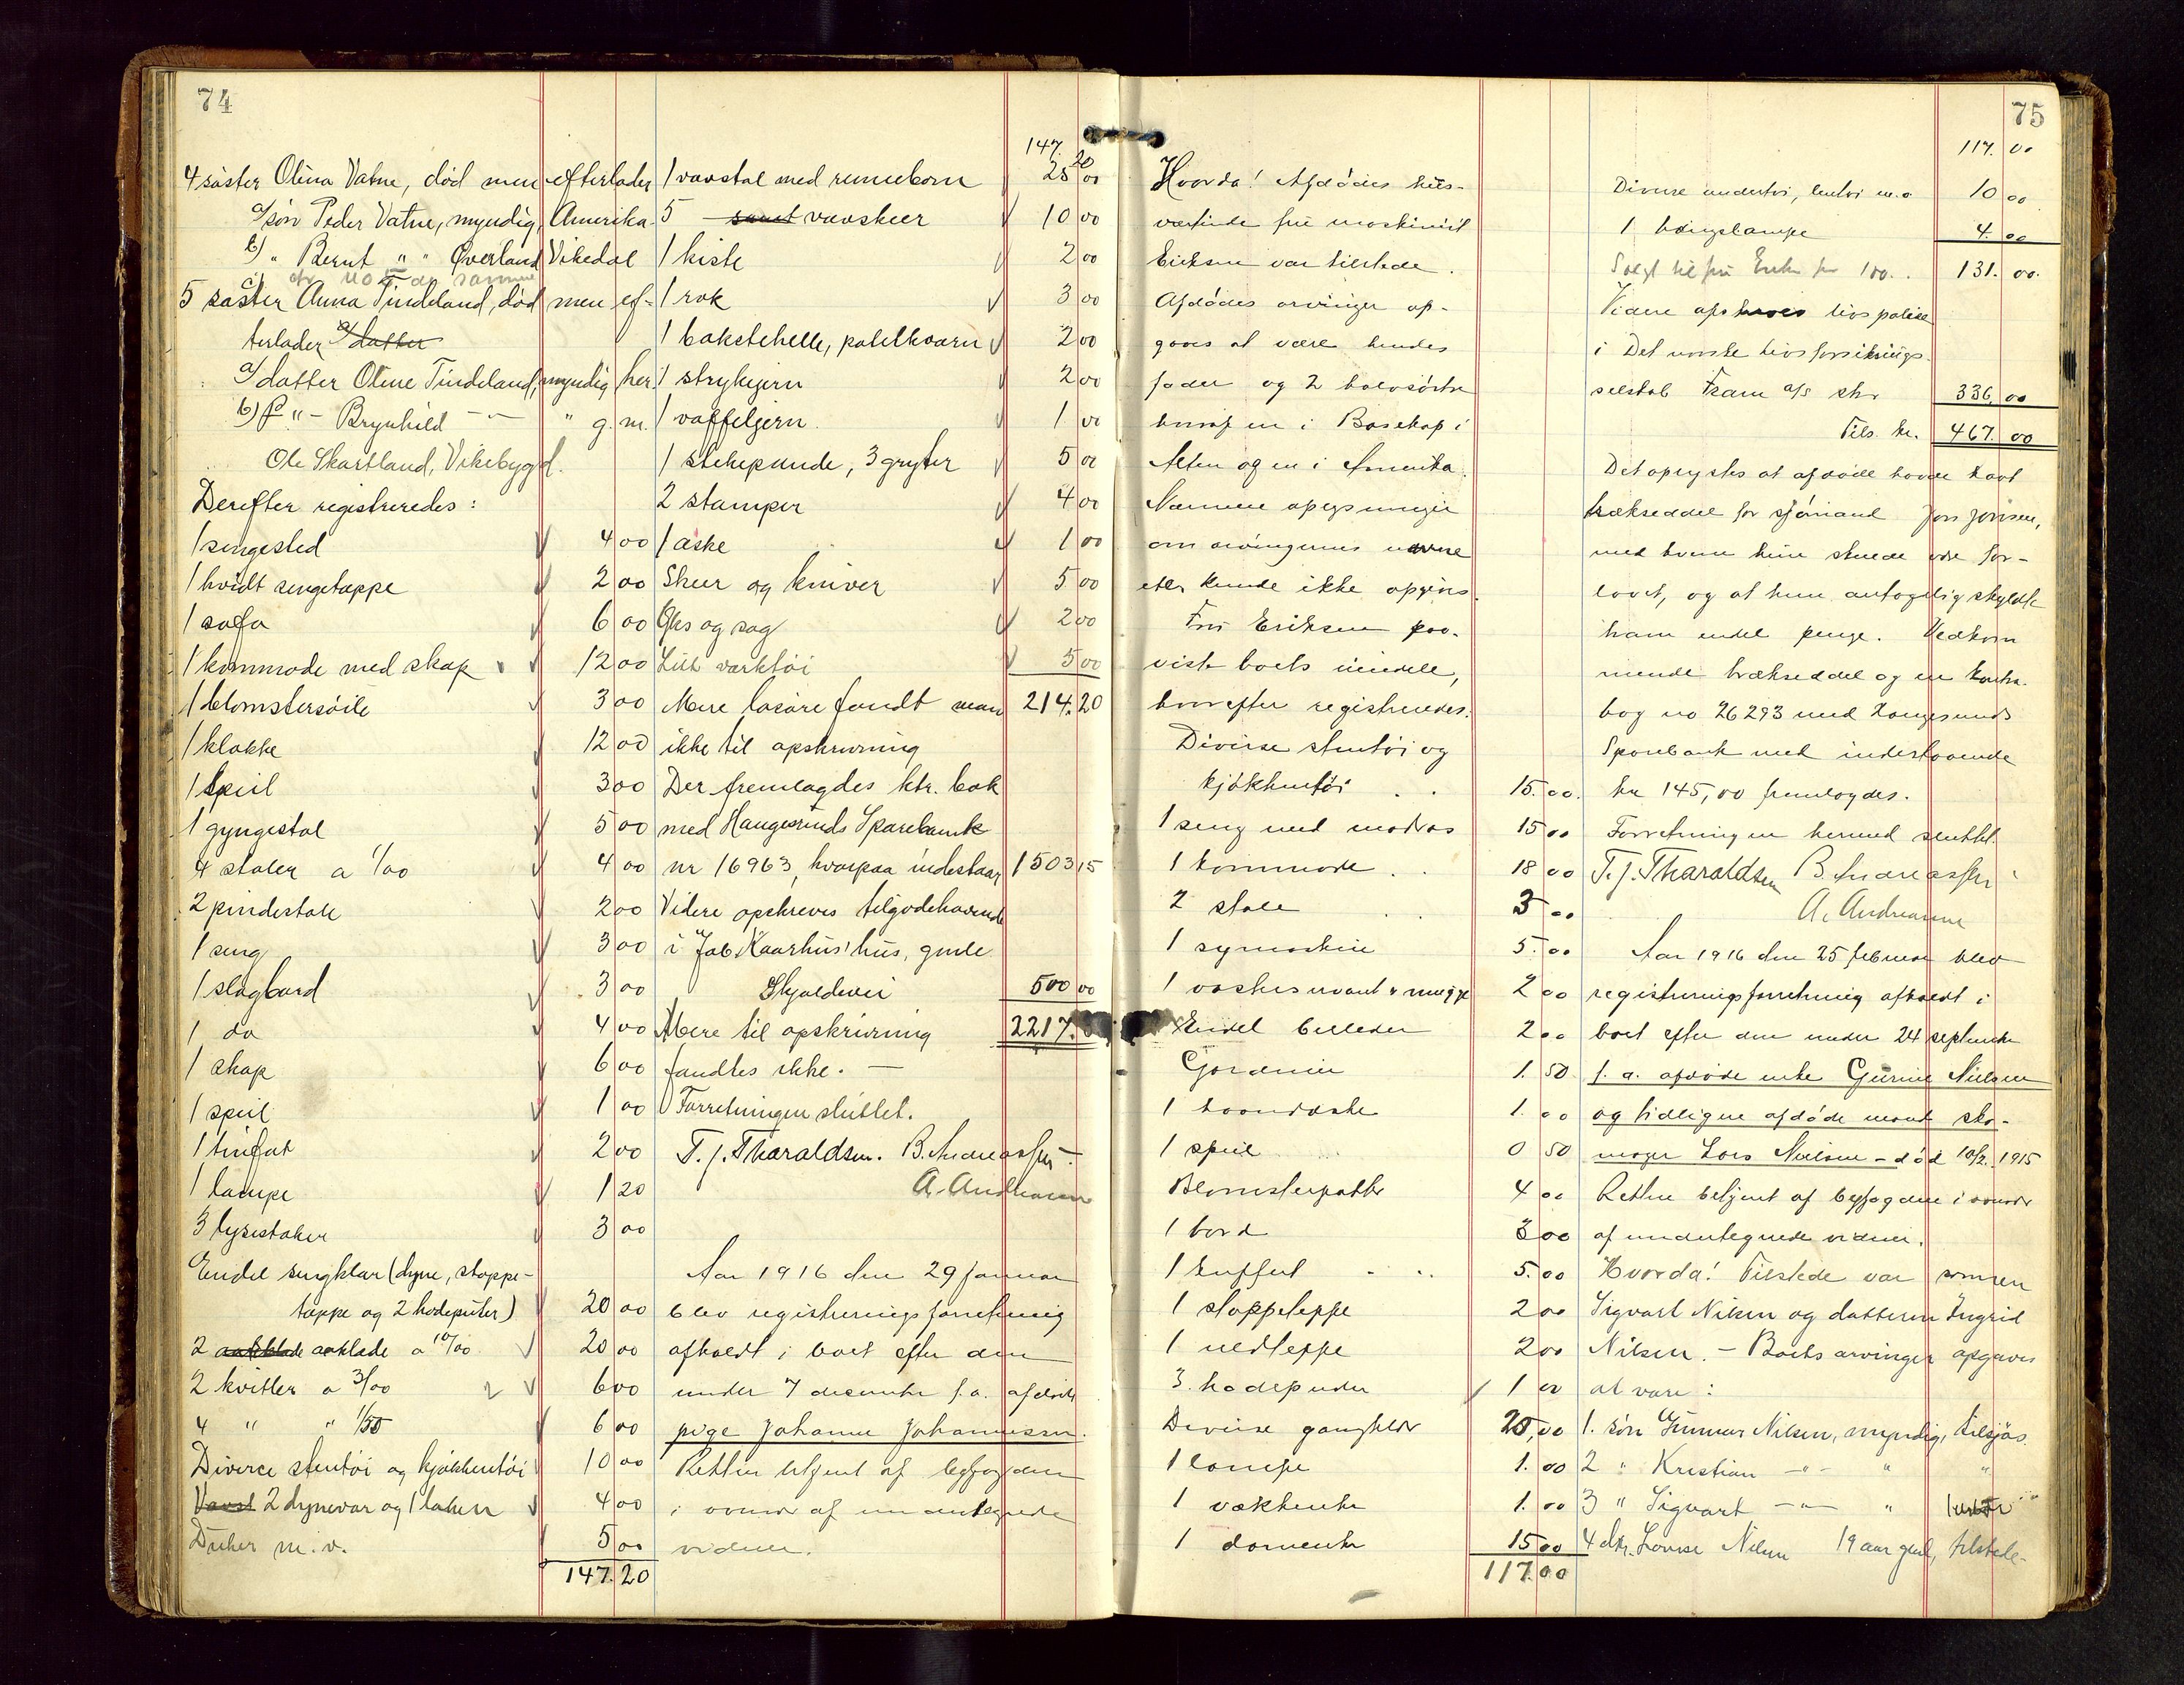 74
4 søster Olina Vatne, død men efterlader
a/ søn Peder Vatne, myndig, Amerika
b) " Bernt " " Øverland Vikedal
5 søster Anna Tindeland, død men ef-
terlader a/ datter
a/ datter Oline Tindeland, myndig, her.
b) " - Brynhild - " - " g. m.
Ole Skartland, Vikebygd.
Derefter registreredes:
1 sengested 4 00
1 hvidt sengetæppe 2 00
1 sofa 6 00
1 kommode med skap 12 00
1 blomstersøile 3 00
1 klokke 12 00
1 speil 3 00
1 gyngestol 5 00
4 stoler a 1/00 4 00
2 pindestole 2 00
1 seng 3 00
1 slagbord 3 00
1 do 4 00
1 skap 6 00
1 speil 1 00
1 tinfat 2 00
1 lampe 1 20
3 lysestaker 3 00
Endel sengklær (dyne, stoppe-
tæppe og 2 hodeputer) 20 00
2 aaklæde a 10/00 20 00
2 kvitler a 3/00 6 00
4 " " 1/50 6 00
Diverse stentøi og kjøkkentøi 10 00
2 dynevar og 1 laken 4 00
Duker m. v. 5 00
147.20
147. 20
1 vævstol med rennebom 25 00
5 vævskeer 10 00
1 kiste 2 00
1 rok 3 00
1 bakstehelle, potetkværn 2 00
1 strykejern 2 00
1 vaffeljern 1 00
1 stekepande, 3 gryter 5 00
2 stamper 4 00
1 æske 1 00
Skeer og kniver 5 00
Øks og sag 2 00
Litt værktøi 5 00
Mere løsøre fandt man 214.20
ikke til opskrivning
Der fremlagdes ktr. bok
med Haugesunds Sparebank
nr 16963, hvorpaa indestaar 1503 15
Videre opskreves tilgodehavende
i Jab Kaarhus' hus, gamle
Skjoldevei 500 00
Mere til opskrivning 2217.
fandtes ikke. -
Forretningen sluttet.
T. J. Tharaldsen. B. Andreassen.
A. Andreassen
Aar 1916 den 29 januar
blev registreringsforretning
afholdt i boet efter den
under 7 december f. a. afdøde
pige Johanne Johannessen.
Retten betjent af byfogden
i overvær af undertegnede
vidner.
75
Hvorda! Afdødes hus-
vertinde fru maskinist
Eriksen var tilstede.
Afdødes arvinger op-
gaves at være hendes
fader og 2 halvsøstre
hvoraf en i Bosekop i
Alten og en i Amerika.
Nærmere oplysninger
om arvingernes navne
etc. kunde ikke opgives.
Fru Eriksen paa-
viste boets eiendele,
hvorefter registreredes:
Diverse stentøi og
kjøkkentøi 15.00.
1 seng med madras 15 00
1 kommode 18 00
2 stole 3 00
1 symaskin 5.00
1 vaskeservant + mugge 2 00
Endel billeder 2 00
Gardiner 1.50
1 haandvæske 1.00
1 speil 0 50
Blomsterpotter 4 00
1 bord 3 00
1 kuffert 5.00
1 stoppeteppe 2 00
1 uldteppe 2 00
3 hodeputer 1 00
Diverse gangklær 20,00
1 lampe 1.00
1 vækkeuhr 1.00
1 dameuhr 15 00
117.00
117. 00
Diverse undertøi, lintøi m.v 10 00
1 hængelampe 4.00
Solgt til fru Erik for 100.. 131. 00.
Videre opskreves livspolise
i Det norske livsforsikrings-
selskab Fram a/s stor 336,00
Tils. kr. 467.00
Det oplystes at afdøde havde havt
trækseddel for sjømand Jon Jonsen,
med hvem hun skulde være for-
lovet, og at hun antagelig skyldte
ham endel penge. Vedkom
mende trækseddel og en kontra-
bog no 26293 med Haugesunds
Sparebank med indestaaende
kr 145,00 fremlagdes.
Forretningen hermed sluttet.
T. J. Tharaldsen B. Andreassen
A. Andreassen
Aar 1916 den 25 februar blev
registreringsforretning afholdt i
boet efter den under 24 september
f. a. afdøde enke Gurine Nielsen
og tidligere afdøde mand sko-
mager Lars Nielsen - død 10/2 1915
Retten betjent af byfogden i overvær
af undertegnede vidner.
Hvorda! Tilstede var sønnen
Sigvart Nilsen og datteren Ingrid
Nilsen. - Boets arvinger opgaves
at være:
1. søn Gunnar Nilsen, myndig, tilsjøs
2 " Kristian - " - " "
3 " Sigvart - " - "
4 dtr. Lovise Nilsen 19 aar gml, tilstede-